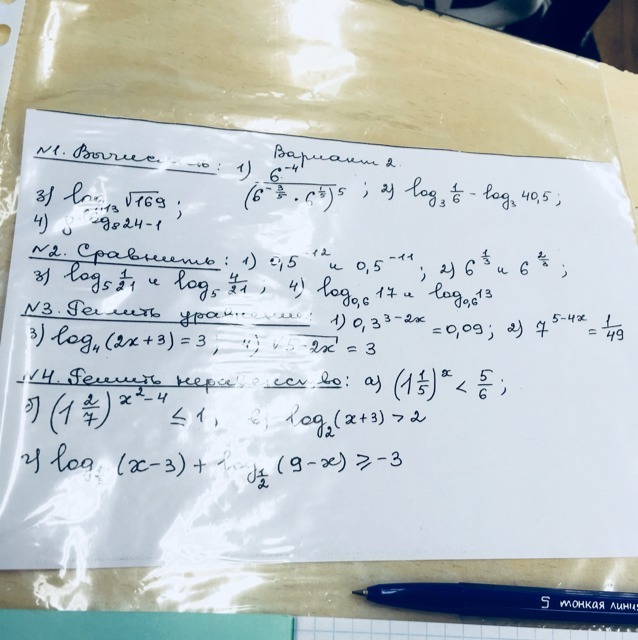 Вариант 2.
№1. Вычислить: 1) 6⁻⁴ / (6^(-3/5) · 6^(1/5))⁵ ; 2) log₃ 1/6 - log₃ 40,5 ;
3) log₁₃ √169 ;
4) 24-1
№2. Сравнить: 1) 0,5⁻¹² и 0,5⁻¹¹ ; 2) 6^(1/3) и 6 ;
3) log₅ 1/21 и log₅ 4/21 ; 4) log₀,₆ 17 и log₀,₆ 13
№3. Решить уравнения: 1) 0,3^(3-2x) = 0,09; 2) 7^(5-4x) = 1/49
3) log₄ (2x+3) = 3 ; 4) √5-2x = 3
№4. Решить неравенство: а) (1 1/5)^x < 5/6 ;
б) (1 2/7)^(x²-4) ≤ 1, в) log₂ (x+3) > 2
г) log (x-3) + log_(1/2) (9-x) ≥ -3
5 тонкая линия